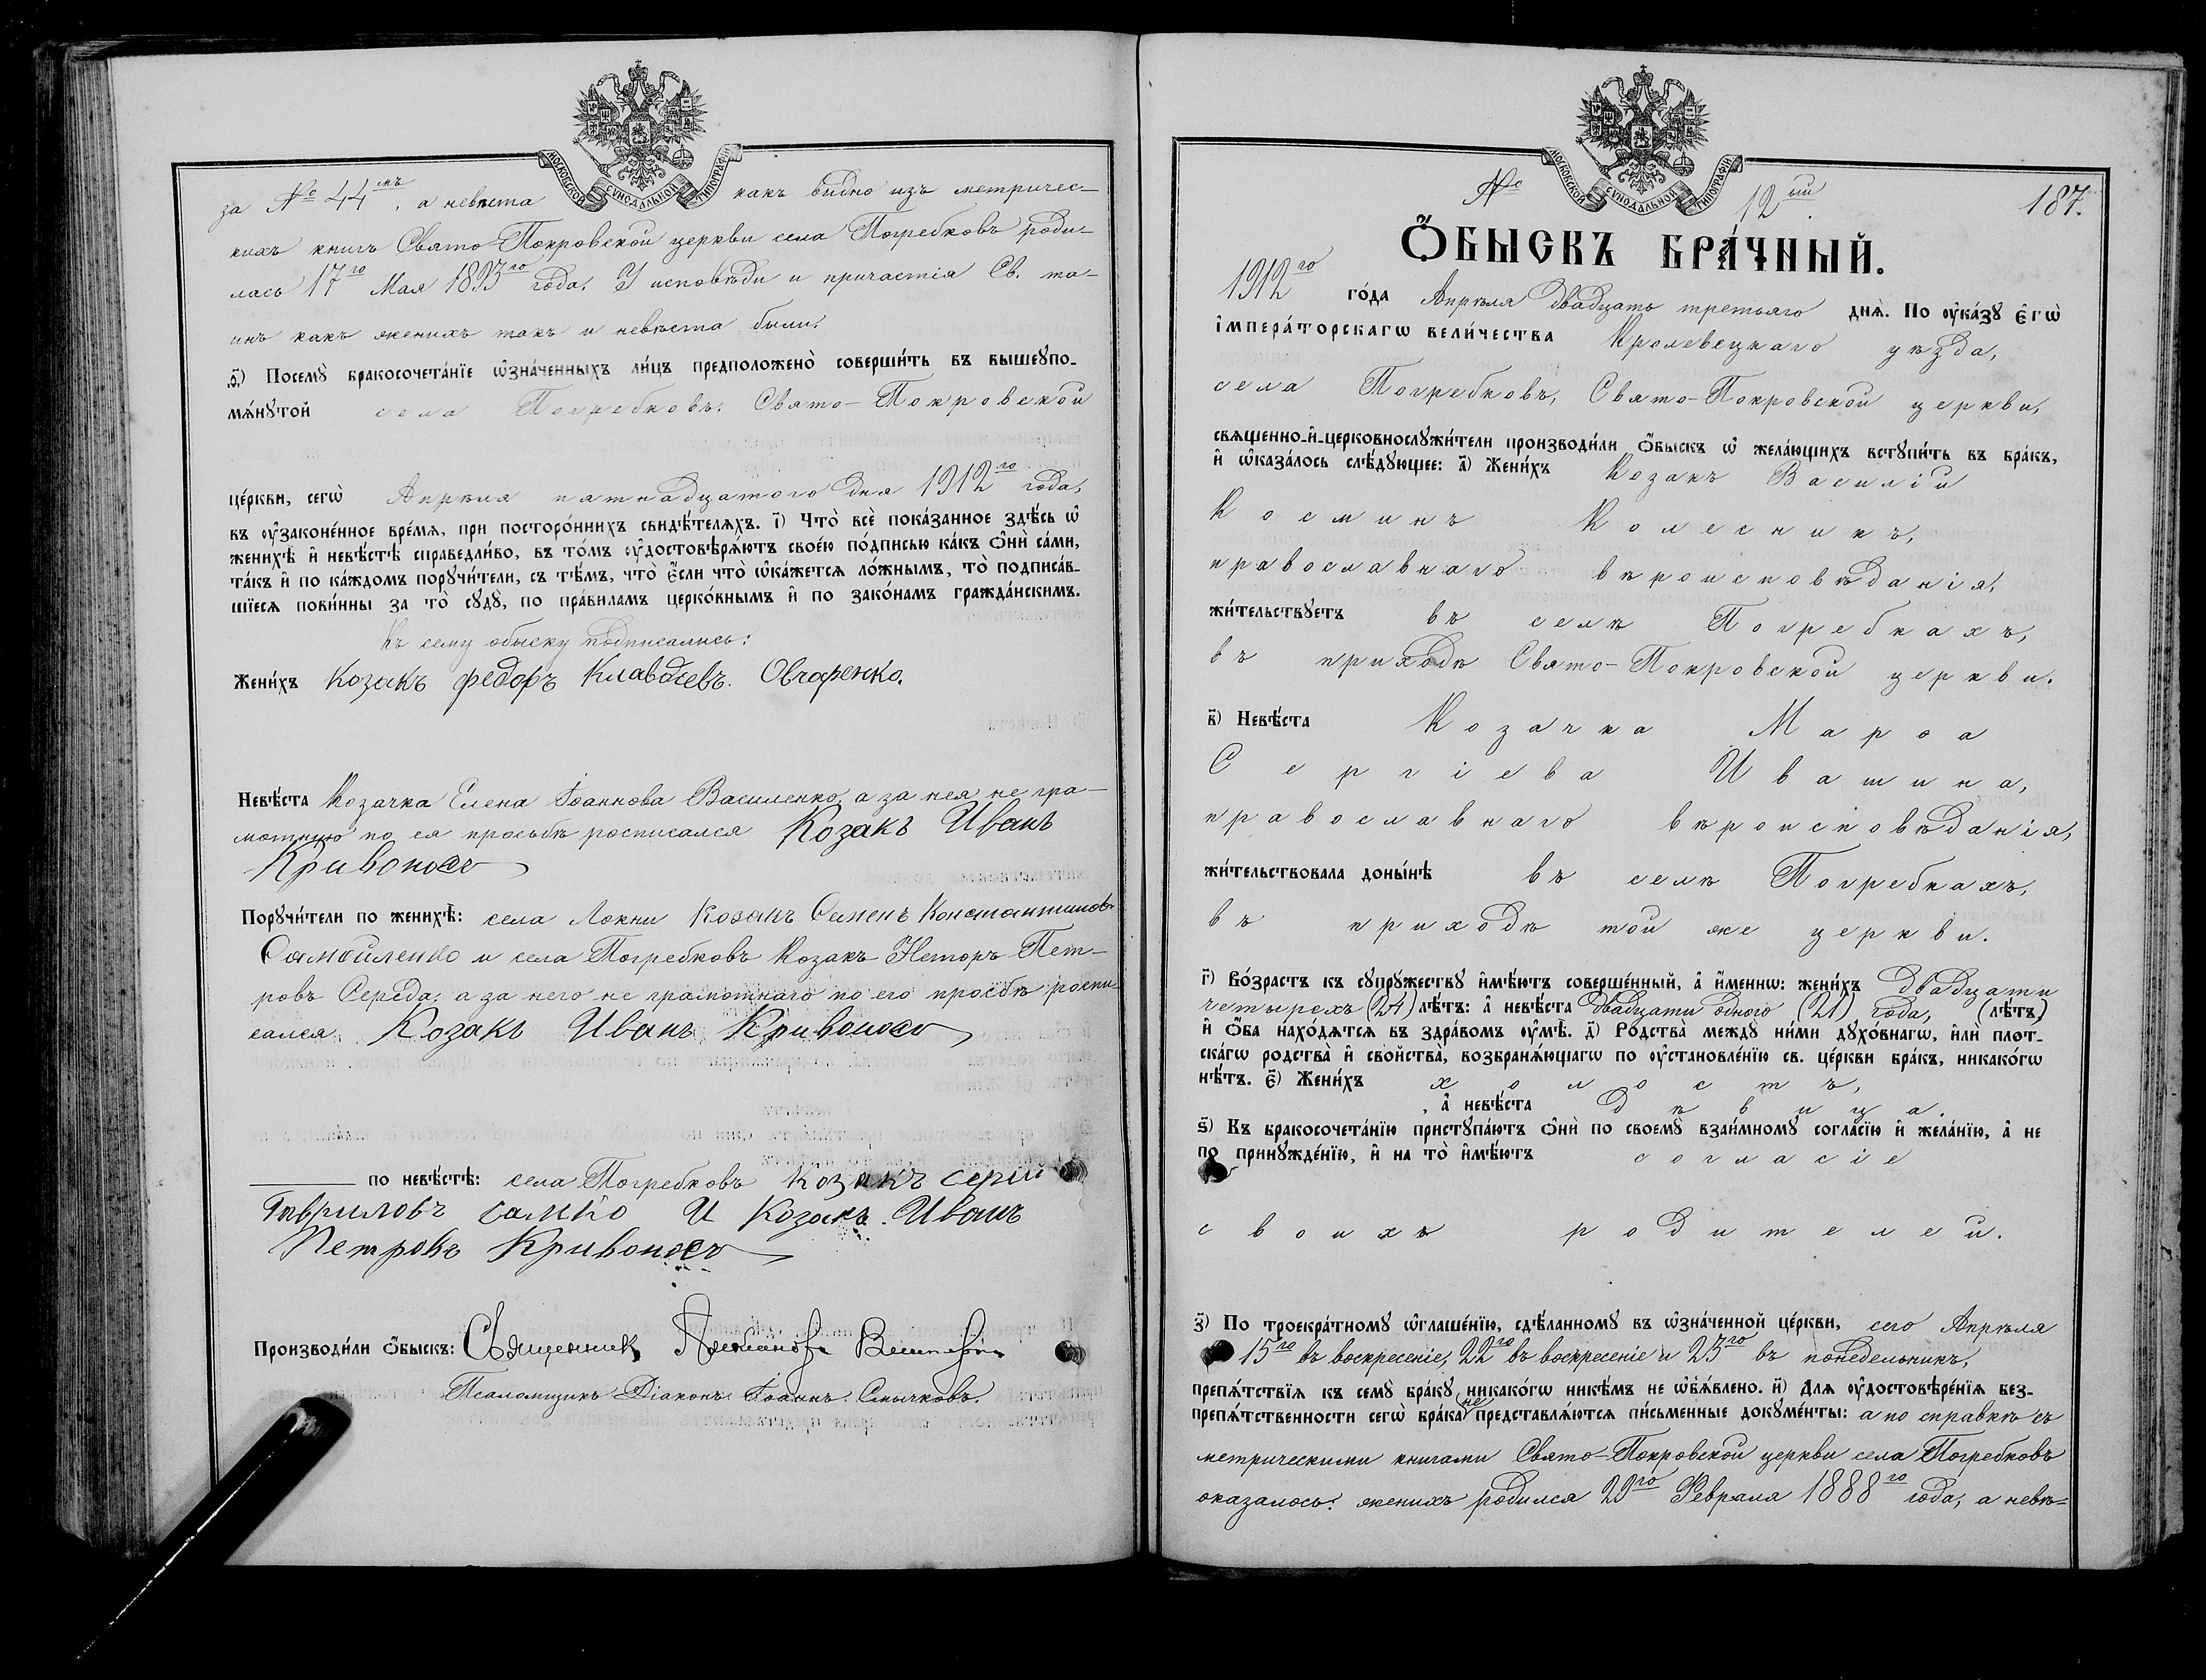 МОСКОВСКОЙ СУНОДАЛЬНОЙ ТИПОГРАФІИ
за № 44мъ, а невѣста какъ видно изъ метричес-
кихъ книгъ Свято-Покровской церкви села Погребковъ роди-
лась 17го Мая 1893го года. У исповѣди и причастія Св. та-
инъ какъ женихъ такъ и невѣста были.
ѳ҃) Посемꙋ̀ бракосочета́нїе ѡ҆зна́ченныхъ ли́цъ предположено̀ соверши́ть въ вышеꙋпо-
мѧ́нꙋтой села Погребковъ. Свято-Покровской
це́ркви, сегѡ̀ Апрѣля пятнадцатого дня 1912го года,
въ ᲂу҆законе́нное вре́мѧ, при посторо́ннихъ свидѣ́телѧхъ. і҃) Что̀ всѐ пока́занное здѣ́сь ѡ҆
женихѣ̀ и҆ невѣ́стѣ справедли́во, въ то́мъ ᲂу҆достовѣрѧ́ютъ свое́ю по́дписью ка́къ ѻ҆нѝ са́ми,
та́къ и҆ по ка́ждомъ порꙋчи́тели, съ тѣ́мъ, что̀ є҆́сли что̀ ѡ҆ка́жетсѧ ло́жнымъ, то̀ подписа́в-
шїесѧ пови́нны за то̀ сꙋдꙋ̀, по пра́виламъ церко́внымъ и҆ по зако́намъ гражда́нскимъ.
Къ сему обыску подписались:
Жени́хъ Козакъ федоръ Клавдіевъ. Овчаренко.
Невѣ́ста Козачка Елена Іоаннова Василенко, а за нея не гра-
мотную по ея просьбѣ росписался Козакъ Иванъ
Кривоносъ
Порꙋчи́тели по женихѣ̀: села Локни Козакъ Семенъ Константиновъ
Самойленко и села Погребковъ Козакъ Несторъ Пет-
ровъ Середа, а за него не грамотнаго по его просьбѣ роспи-
сался Козакъ Иванъ Кривоносъ
по невѣ́стѣ: села Погребковъ Козакъ Сергій
Гавриловъ Самко И Козакъ. Иванъ
Петровъ Кривоносъ
Производи́ли ѻ҆́быскъ: Священникъ
Псаломщикъ Діаконъ Іоаннъ Смычковъ.
МОСКОВСКОЙ СУНОДАЛЬНОЙ ТИПОГРАФІИ
№ 12ый. 187.
Ѻ҆́БЫСКЪ БРА́ЧНЫЙ.
1912го го́да Апрѣля двадцать третьяго днѧ̀. По ᲂу҆ка́зꙋ Є҆гѡ̀
і҆мпера́торскагѡ вели́чества Кролевецкаго уѣзда,
села Погребковъ, Свято-Покровской церкви,
свѧщенно-и҆-церковнослꙋжи́тели производи́ли ѻ҆́быскъ ѡ҆ жела́ющихъ встꙋпи́ть въ бра́къ,
и҆ ѡ҆каза́лось слѣ́дꙋющее: а҃) Жени́хъ Козакъ Василій
Косминъ Колесникъ,
православнаго вѣроисповѣданія,
жи́тельствꙋетъ въ селѣ Погребкахъ,
въ приходѣ Свято-Покровской церкви.
в҃) Невѣ́ста Козачка Марѳа
Сергіева Ивашина,
православнаго вѣроисповѣданія,
жи́тельствовала доны́нѣ въ селѣ Погребкахъ,
въ приходѣ той же церкви.
г҃) Во́зрастъ къ сꙋпрꙋ́жествꙋ и҆мѣ́ютъ соверше́нный, а҆̀ и҆́меннѡ: жени́хъ двадцати
четырехъ (24) лѣ́тъ: а҆̀ невѣ́ста двадцати одного (21) года, (лѣ́тъ,)
и҆ ѻ҆́ба нахо́дѧтсѧ въ здра́вомъ ᲂу҆мѣ̀. д҃) Ро́дства̀ междꙋ̀ ни́ми дꙋхо́внагѡ, и҆лѝ плот-
ска́гѡ родства̀ и҆ сво́йства̀, возбранѧ́ющагѡ по ᲂу҆становле́нїю св. це́ркви бра́къ, никако́гѡ
нѣ́тъ. є҃) Жени́хъ холостъ,
, а҆̀ невѣ́ста дѣвица.
ѕ҃) Къ бракосочета́нїю пристꙋпа́ютъ ѻ҆нѝ по своемꙋ̀ взаи́мномꙋ согла́сїю и҆ жела́нїю, а҆̀ не
по принꙋжде́нїю, и҆ на то̀ и҆мѣ́ютъ согласіе
своихъ родителей.
з҃) По троекра́тномꙋ ѡ҆глаше́нїю, сдѣ́ланномꙋ въ ѡ҆зна́ченной це́ркви, сего Апрѣля
15го въ воскресеніе, 22го въ воскресеніе и 23го въ понедельникъ,
препѧ́тствїѧ къ семꙋ̀ бра́кꙋ никако́гѡ никѣ́мъ не ѡ҆бъѧ́влено. и҃) Для ᲂу҆достовѣре́нїѧ без-
препѧ́тственности сегѡ̀ бра́ка не представлѧ́ютсѧ пи́сьменные докꙋме́нты: а по справкѣ съ
метрическими книгами Свято-Покровской церкви села Погребковъ
оказалось: женихъ родился 29го Февраля 1888го года, а невѣ=